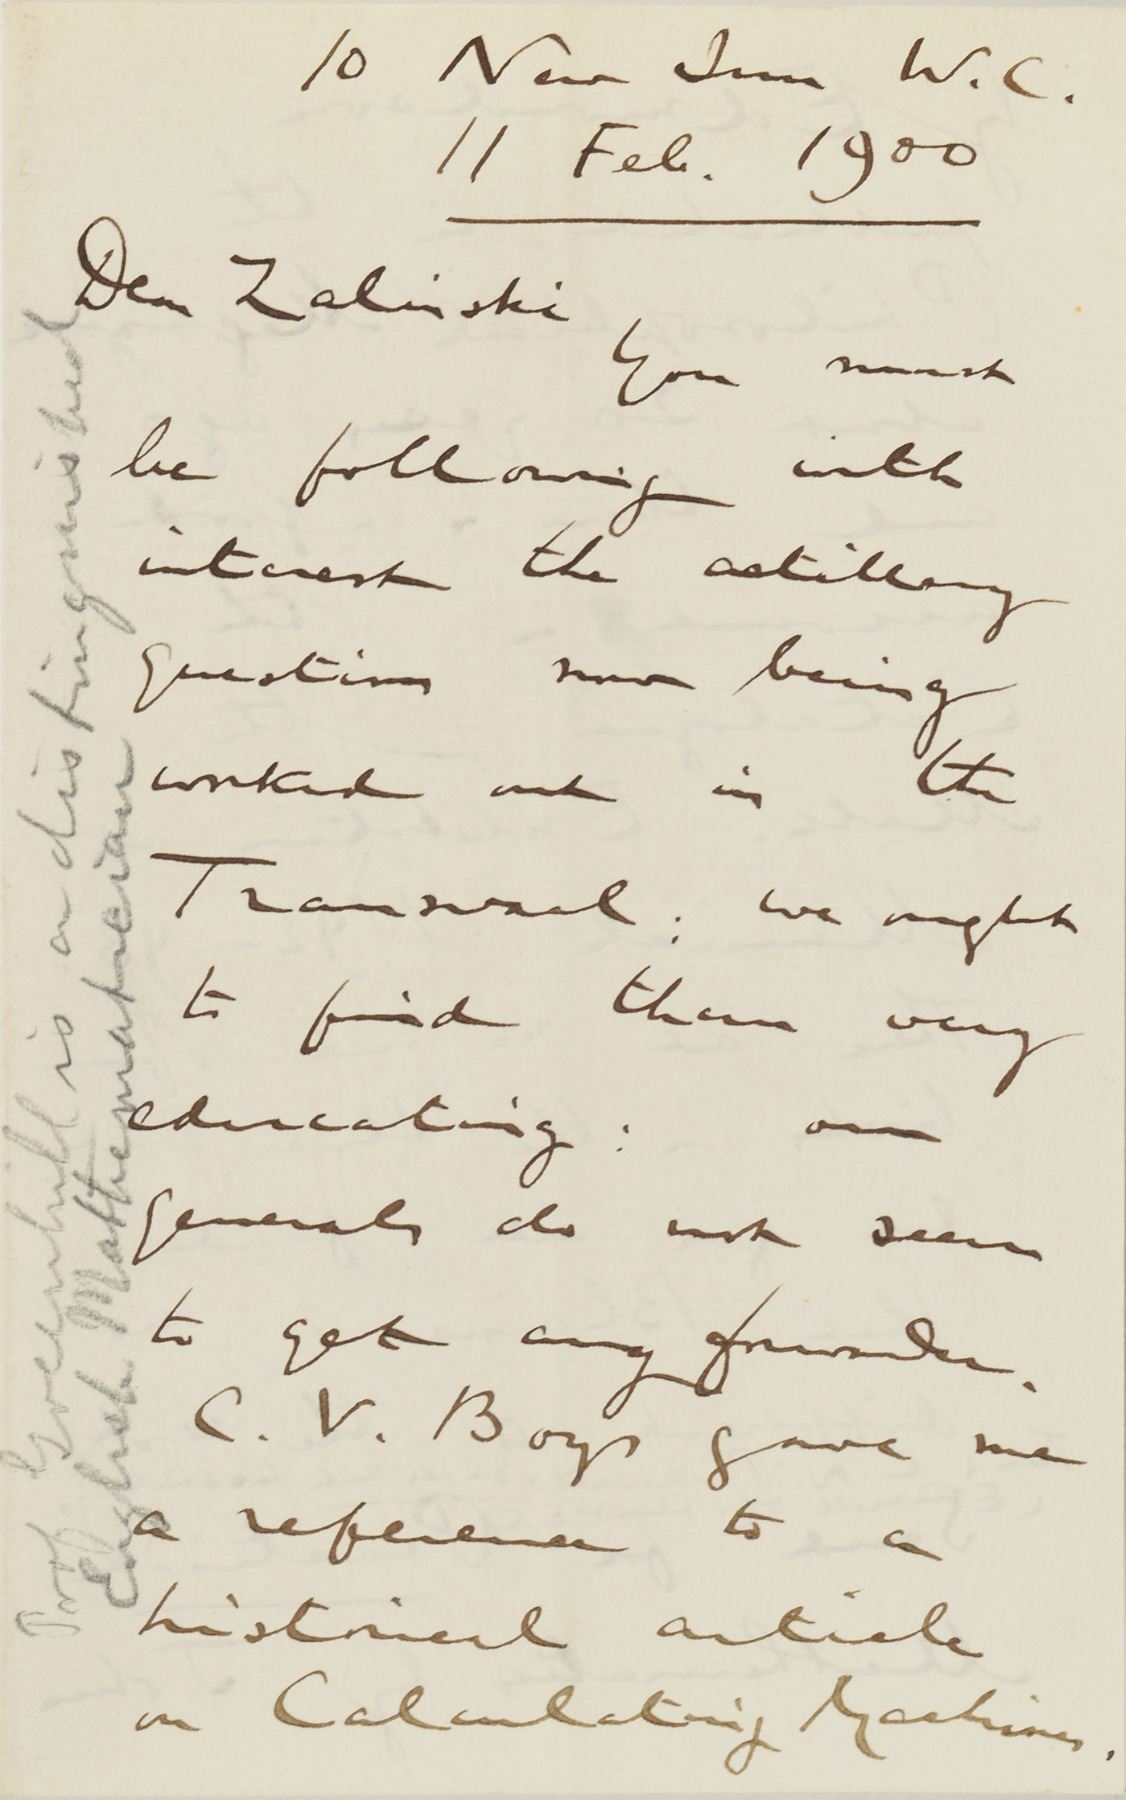 10 New Inn W.C.
11 Feb. 1900
Dear Zalinski
You must
be following with
interest the artillery
questions now being
worked out in the
Transvaal; we ought
to find them very
educating: our
generals do not seem
to get any forwarder.
C. V. Boys gave me
a reference to a
historical article
on Calculating Machines.
Prof Greenhill is a distinguished
English Mathematician